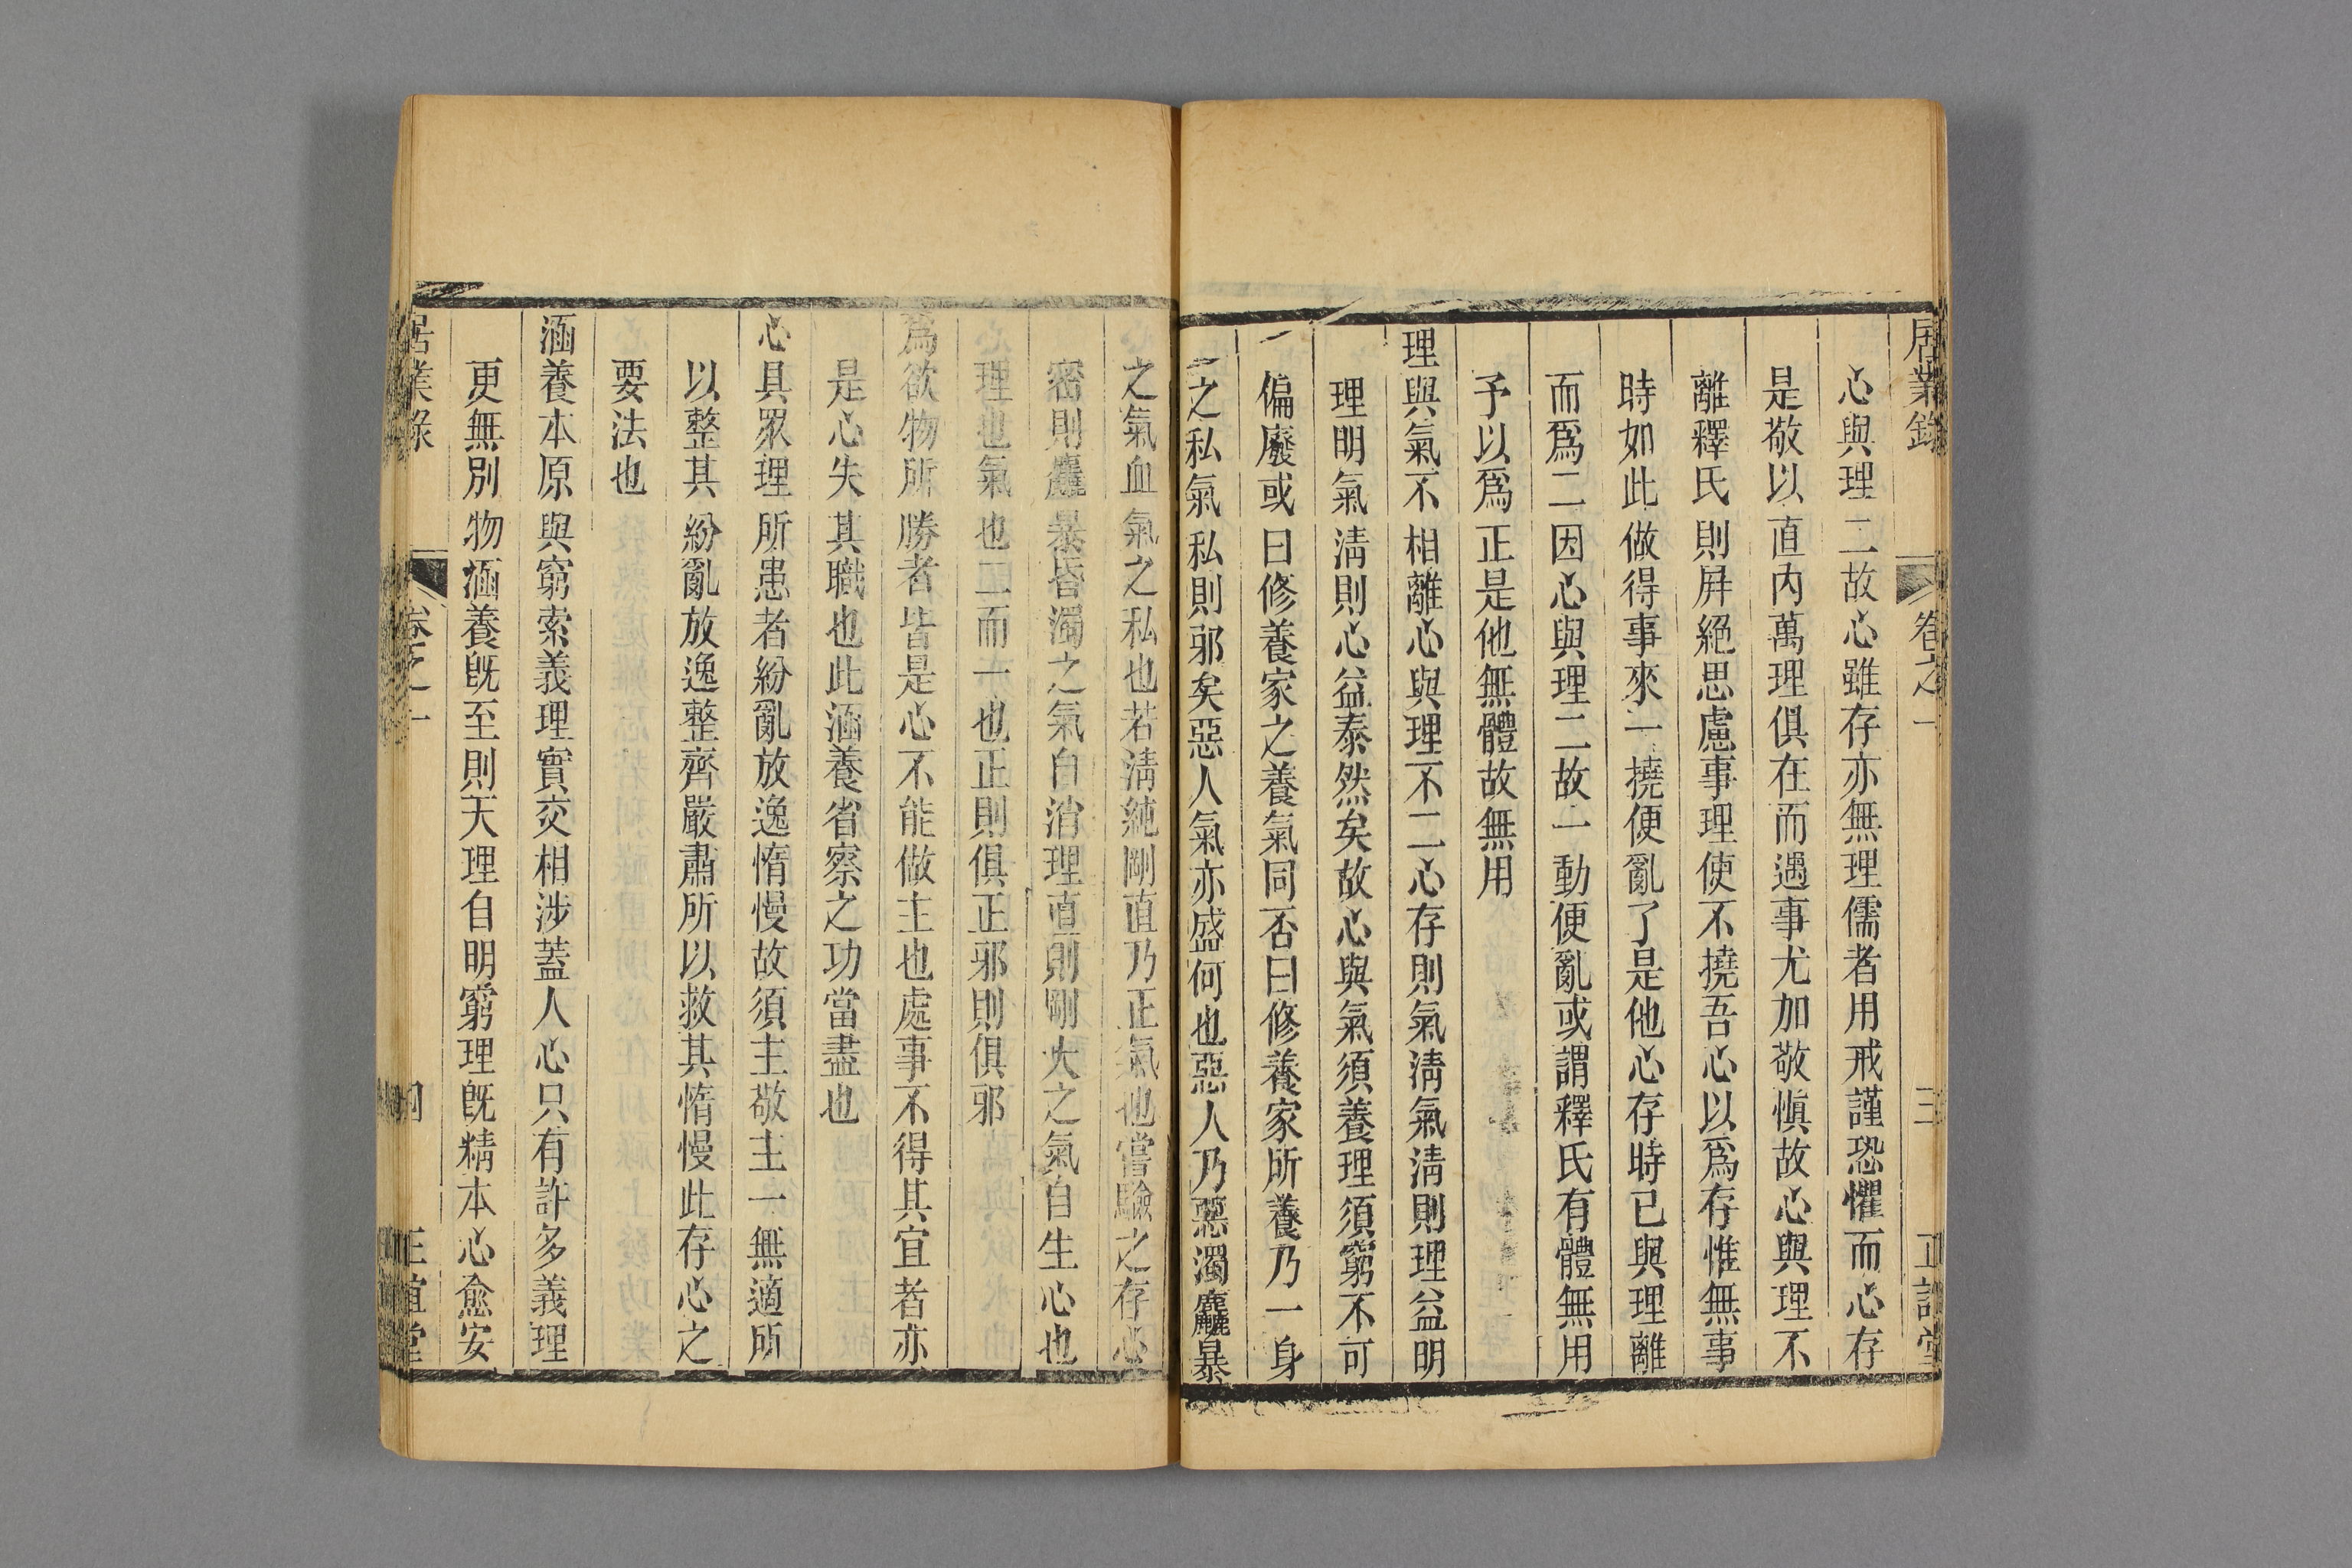 居業錄 卷之一 三 正誼堂
心與理二故心雖存亦無理儒者用戒謹恐懼而心存
是敬以直內萬理俱在而遇事尤加敬愼故心與理不
離釋氏則屛絕思慮事理使不撓吾心以爲存惟無事
時如此做得事來一撓便亂了是他心存時已與理離
而爲二因心與理二故一動便亂或謂釋氏有體無用
予以爲正是他無體故無用
理與氣不相離心與理不二心存則氣淸氣淸則理益明
理明氣淸則心益泰然矣故心與氣須養理須窮不可
偏廢或曰修養家之養氣同否曰修養家所養乃一身
之私氣私則邪矣惡人氣亦盛何也惡人乃惡濁麤暴
之氣血氣之私也若淸純剛直乃正氣也嘗驗之存心
密則麤暴昏濁之氣自消理直則剛大之氣自生心也
理也氣也二而一也正則俱正邪則俱邪
爲欲物所勝者皆是心不能做主也處事不得其宜者亦
是心失其職也此涵養省察之功當盡也
心具眾理所患者紛亂放逸惰慢故須主敬主一無適所
以整其紛亂放逸整齊嚴肅所以救其惰慢此存心之
要法也
涵養本原與窮索義理實交相涉蓋人心只有許多義理
更無別物涵養旣至則天理自明窮理旣精本心愈安
居業錄 卷之一 四 正誼堂